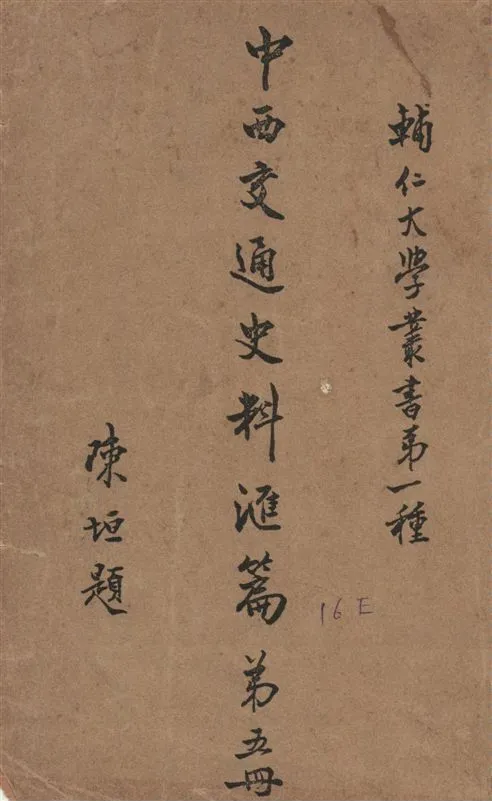 輔仁大學叢書第一種
中西交通史料滙篇第五冊
陳垣題
16 E